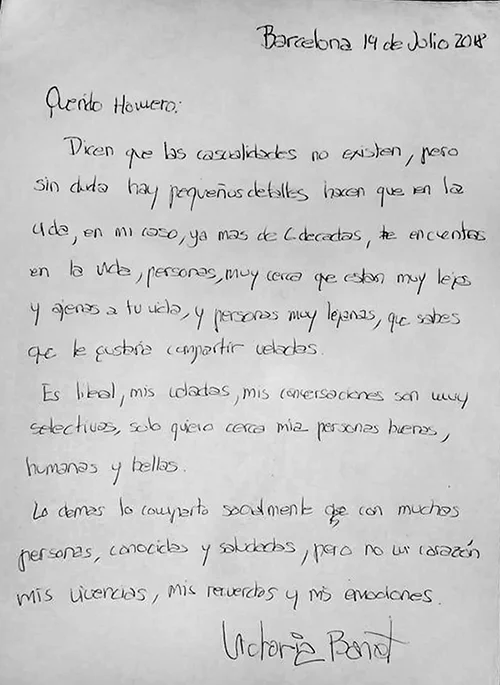 Barcelona 19 de Julio 2018
Querido Homero:
Dicen que las casualidades no existen, pero
sin duda hay pequeños detalles hacen que en la
vida, en mi caso, ya mas de 6 decadas, te encuentras
en la vida, personas, muy cerca que estan muy lejos
y ajenas a tu vida, y personas muy lejanas, que sabes
que le gustaria compartir veladas.
Es literal, mis veladas, mis conversaciones son muy
selectivas, solo quiero cerca mia personas buenas,
humanas y bellas.
Lo demas lo comparto socialmente que con muchas
personas, conocidas y saludadas, pero no mi corazón
mis vivencias, mis recuerdos y mis emociones.
Victoria Bonet